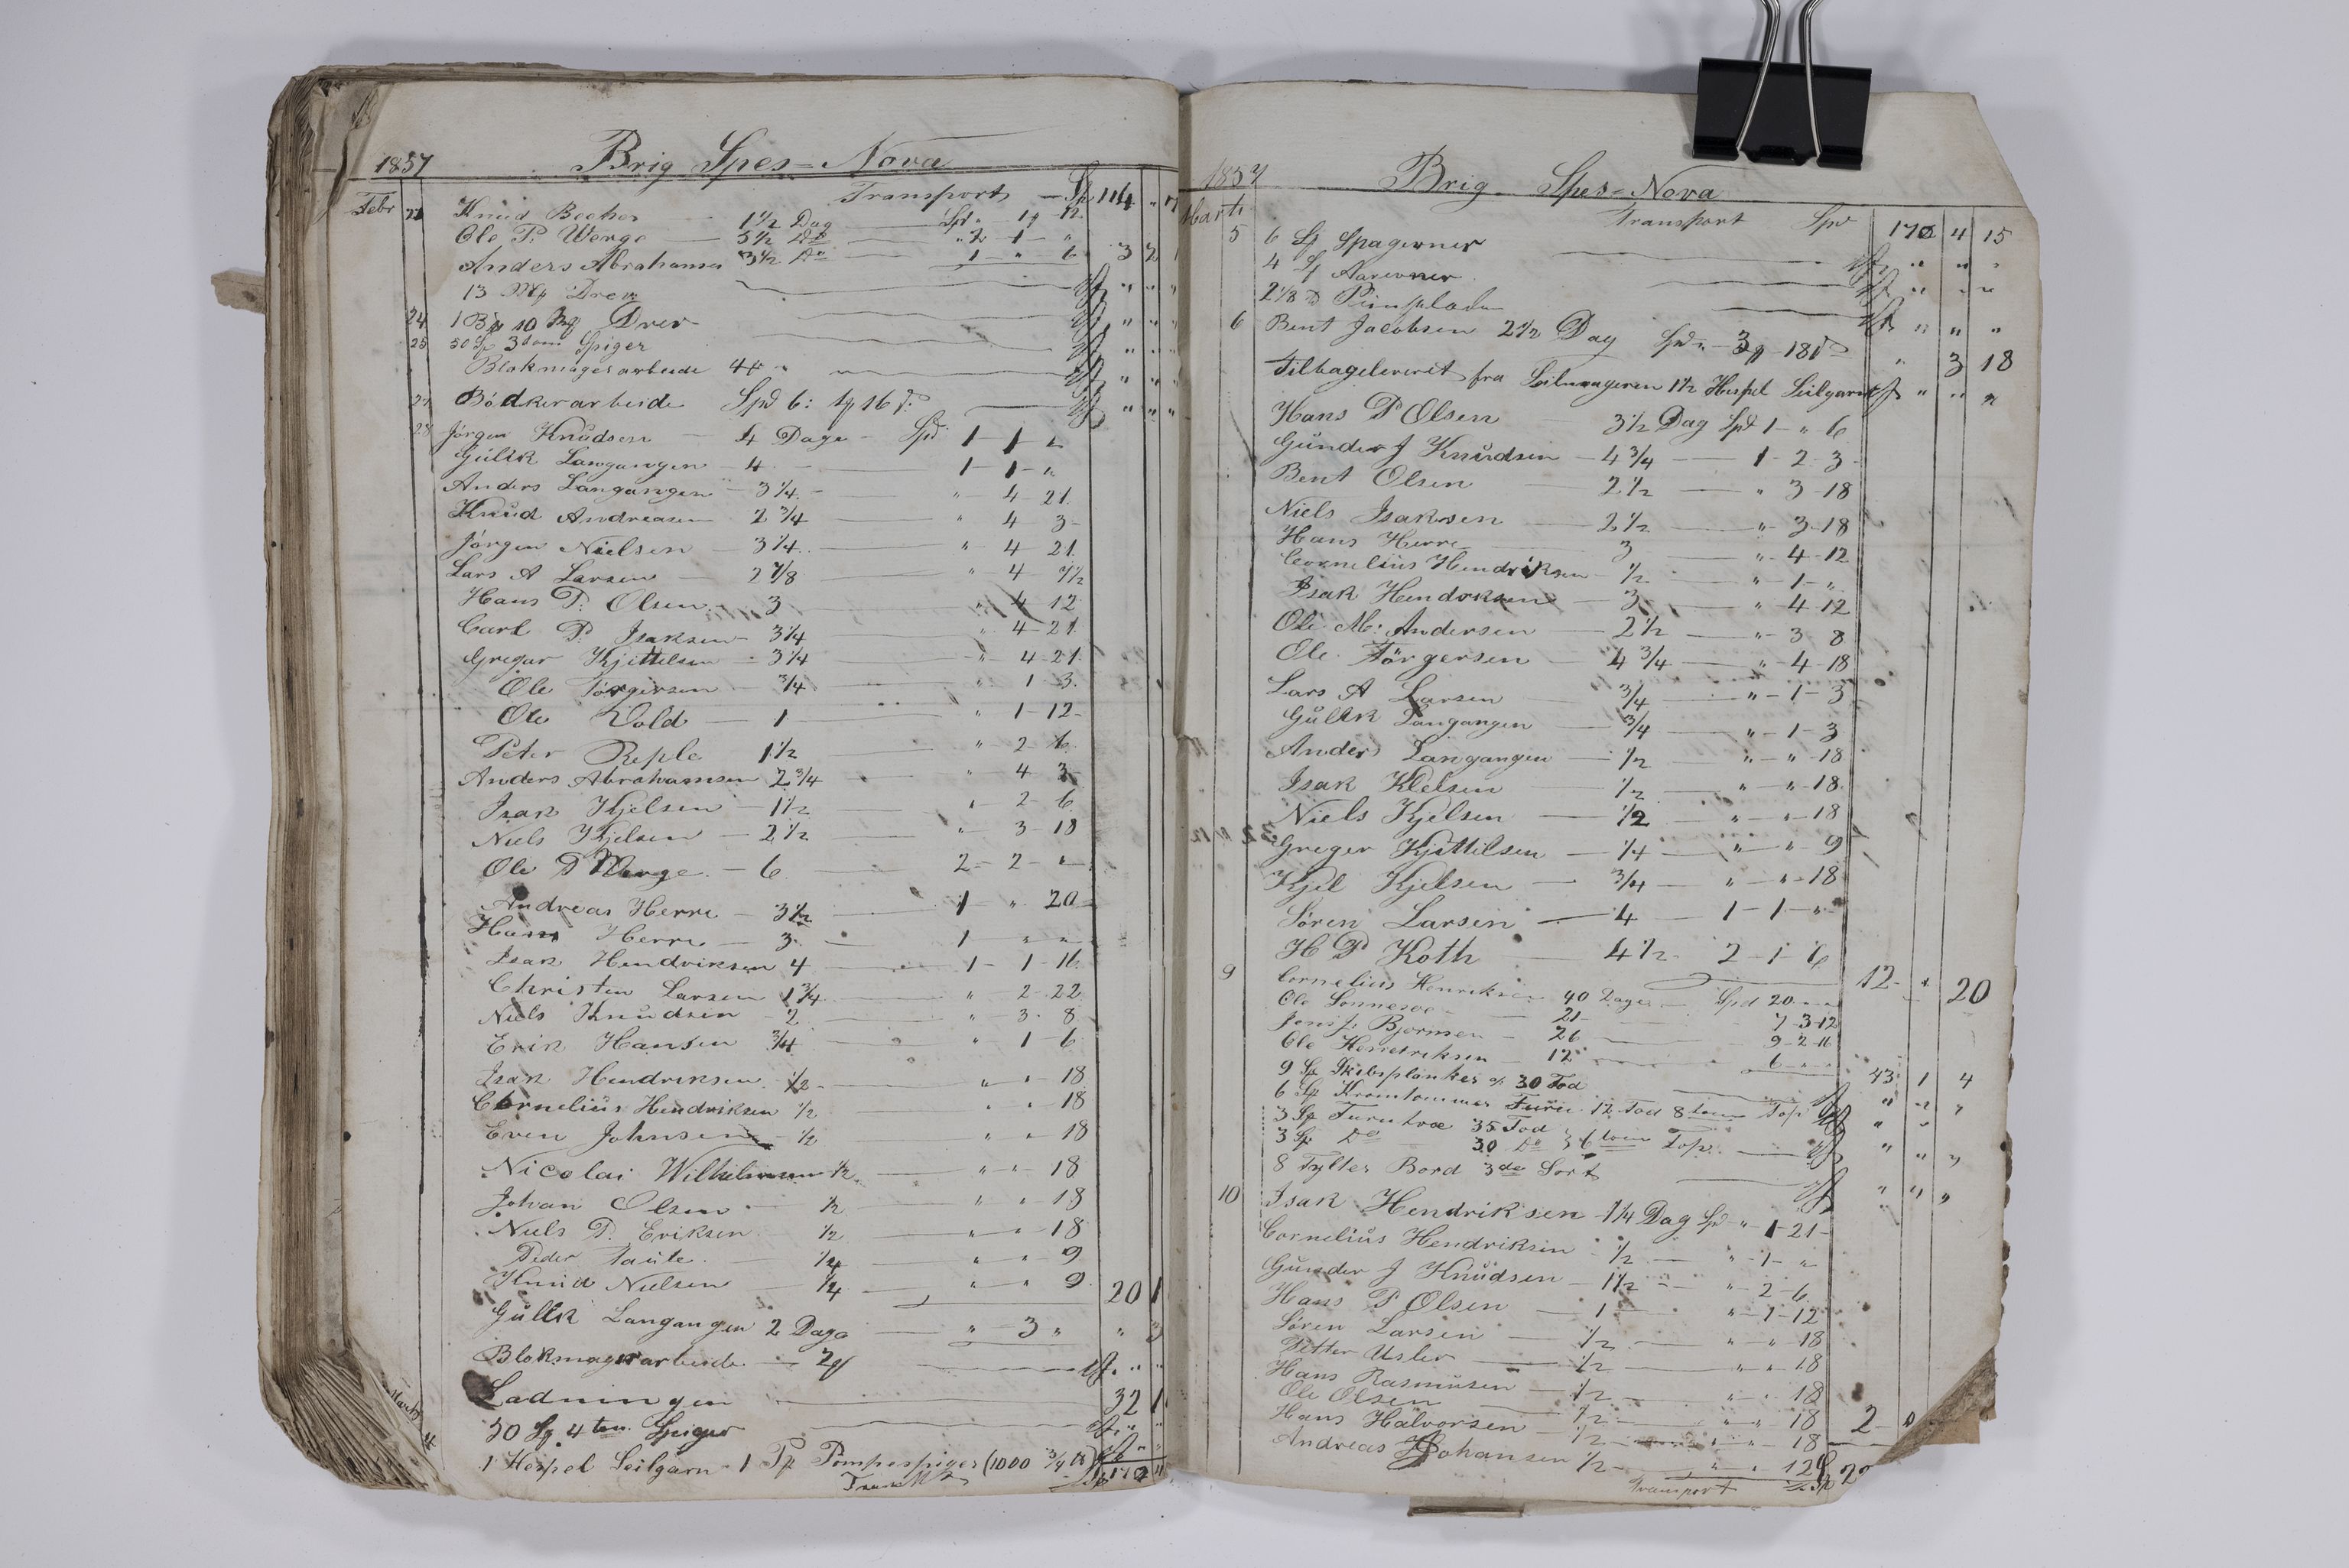 1857 Brig Spes=Nova
Transport Sp 114 "
Febr 21 Knud Becker 1 1/2 Dag Spd " 1 12
Ole P: Werge 5 1/2 Do " 2 1 "
Anders Abrahamsen 3 1/2 Do 1 " 6 3 2
13 Drev
24 1 10 Drev
25 50 3 tom Spiger
Blokmagerarbeide 4
27 Bödkerarbeide Spd 6: 16
28 Jörgen Knudsen 4 Dage Spd 1 1 "
Gullik Langangen 4 1 1 "
Anders Langangen 3 1/4 " 4 21
Knud Andreasen 2 3/4 " 4 3
Jörgen Nielsen 3 1/4 " 4 21
Lars A Larsen 2 7/8 " 4 7 1/2
Hans P: Olsen 3 " 4 12
Carl P: Isaksen 3 1/4 " 4 21
Gregar Kjittelsen 3 1/4 " 4 21
Ole Törgersen 3/4 " 1 3
Ole Vold 1 " 1 12
Peter Reple 1 1/2 " 2 6
Anders Abrahamsen 2 3/4 " 4 3
Isak Kjelsen 1 1/2 " 2 6
Niels Kjelsen 2 1/2 " 3 18
Ole P Werge 6 2 2 "
Andreas Herre 3 1/2 1 " 20
Hans Herre 3 1 " "
Isak Hendriksen 4 1 1 16
Christen Larsen 1 3/4 " 2 22
Niels Knudsen 2 " 3 8
Erik Hansen 3/4 " 1 6
Isak Hendriksen 1/2 " " 18
Cornelius Hendriksen 1/2 " " 18
Even Johnsen 1/2 " " 18
Nicolai Wilhelmsen 1/2 " " 18
Johan Olsen 1/2 " " 18
Niels P. Eriksen 1/2 " " 18
Peder Taute 1/4 " " 9
Knud Nielsen 1/4 " " 9 20 1
Gullik Langangen 2 Dage " 3 " " 3
Blokmagerarbeide
Ladningen 32 1
Marts 4 50 4 tom Spiger
1 Hespel Seilgarn 1 Pompespiger (1000 3/4
Transport
1857 Brig Spes=Nova
Transport Spd 170 4 15
Marti 5 6 Spagerner
4 Aarerner
2 1/8 Pumplader
6 Bent Jacobsen 2 1/2 Dag Spd " 3 18 " 3 18
Tilbageleveret fra Seilmageren 1 1/2 Hespel Seilgarn
Hans P Olsen 3 1/2 Dag Spd 1 " 6
Gunder J Knudsen 4 3/4 1 2 3
Bent Olsen 2 1/2 " 3 18
Niels Isaksen 2 1/2 " 3 18
Hans Herre 3 " 4 12
Cornelius Hendriksen 1/2 " 1 "
Isak Hendriksen 3 " 4 12
Ole M: Andersen 2 1/2 " 3 8
Ole Törgersen 4 3/4 " 4 18
Lars A Larsen 3/4 " 1 3
Gullik Langangen 3/4 " 1 3
Anders Langangen 1/2 " " 18
Isak Kjelsen 1/2 " " 18
Niels Kjelsen 1/2 " " 18
Greger Kjittelsen 1/4 " " 9
Kjel Kjelsen 3/4 " " 18
Sören Larsen 4 1 1 "
H P Koth 4 1/2 2 1 6 12 " 20
9 Cornelius Henriksen 40 Dage Spd 20 " "
Ole 21 7 3 12
Jens J: Bjormen 26 9 2 16
Ole Hendriksen 12 6 " " 43 1 4
9 Skibsplanker 30 Fod
6 Kromtommer Furu 12 Fod 8 tom Top
3 Furutræ 35 Fod
3 Do 30 Do 36 tom Top
8 Tylter Bord 3de Sort
10 Isak Hendriksen 1 1/4 Dag Sp " 1 21
Cornelius Hendriksen 1/2 " 1 "
Gunder J Knudsen 1 1/2 " 2 6
Hans P Olsen 1 " 1 12
Sören Larsen 1/2 " " 18
Petter Usler 1/2 " " 18
Hans Rasmusen 1/2 " " 18
Ole Olsen 1/2 " " 18
Hans Halvorsen 1/2 " " 18
Andreas Johansen 1/2 " " 12
Transport